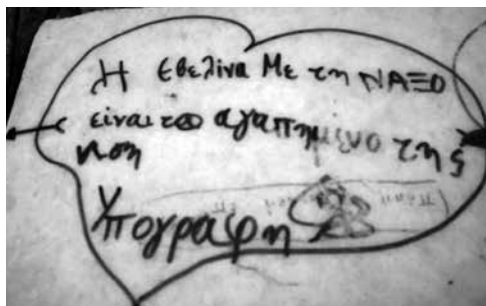 Η Εβελίνα Με τη ΝΑΞΟ
είναι το αγαπημένο της
νηση
Υπογραφη